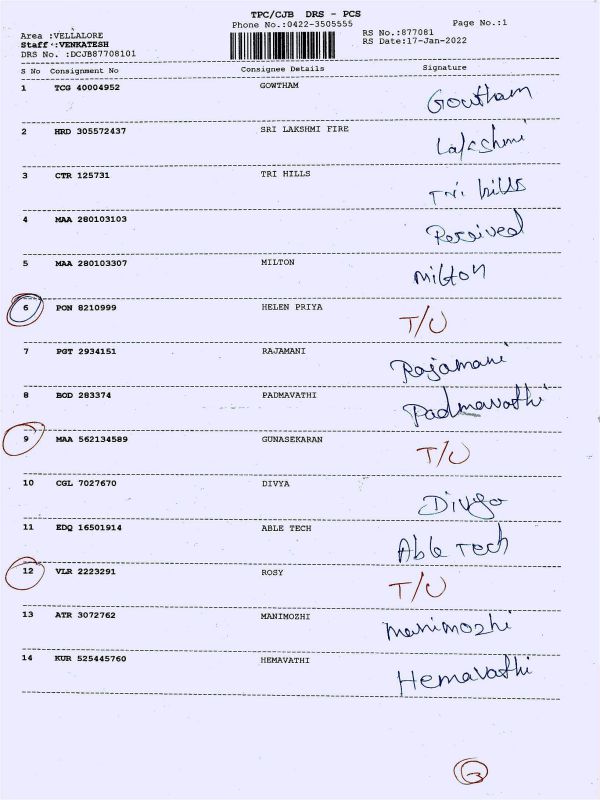 TPC/CJB DRS - PCS
Phone No.:0422-3505555 Page No.:1
Area :VELLALORE RS No.:877081
Staff :VENKATESH RS Date:17-Jan-2022
DRS No. :DCJB87708101
S No Consignment No Consignee Details Signature
1 TCG 40004952 GOWTHAM Gowtham
2 HRD 305572437 SRI LAKSHMI FIRE Lakshmi
3 CTR 125731 TRI HILLS Tri hills
4 MAA 280103103 Received
5 MAA 280103307 MILTON Milton
6 PON 8210999 HELEN PRIYA T/U
7 PGT 2934151 RAJAMANI Rajamani
8 BOD 283374 PADMAVATHI Padmavathi
9 MAA 562134589 GUNASEKARAN T/U
10 CGL 7027670 DIVYA Divya
11 EDQ 16501914 ABLE TECH Able Tech
12 VLR 2223291 ROSY T/U
13 ATR 3072762 MANIMOZHI Manimozhi
14 KUR 525445760 HEMAVATHI Hemavathi
3